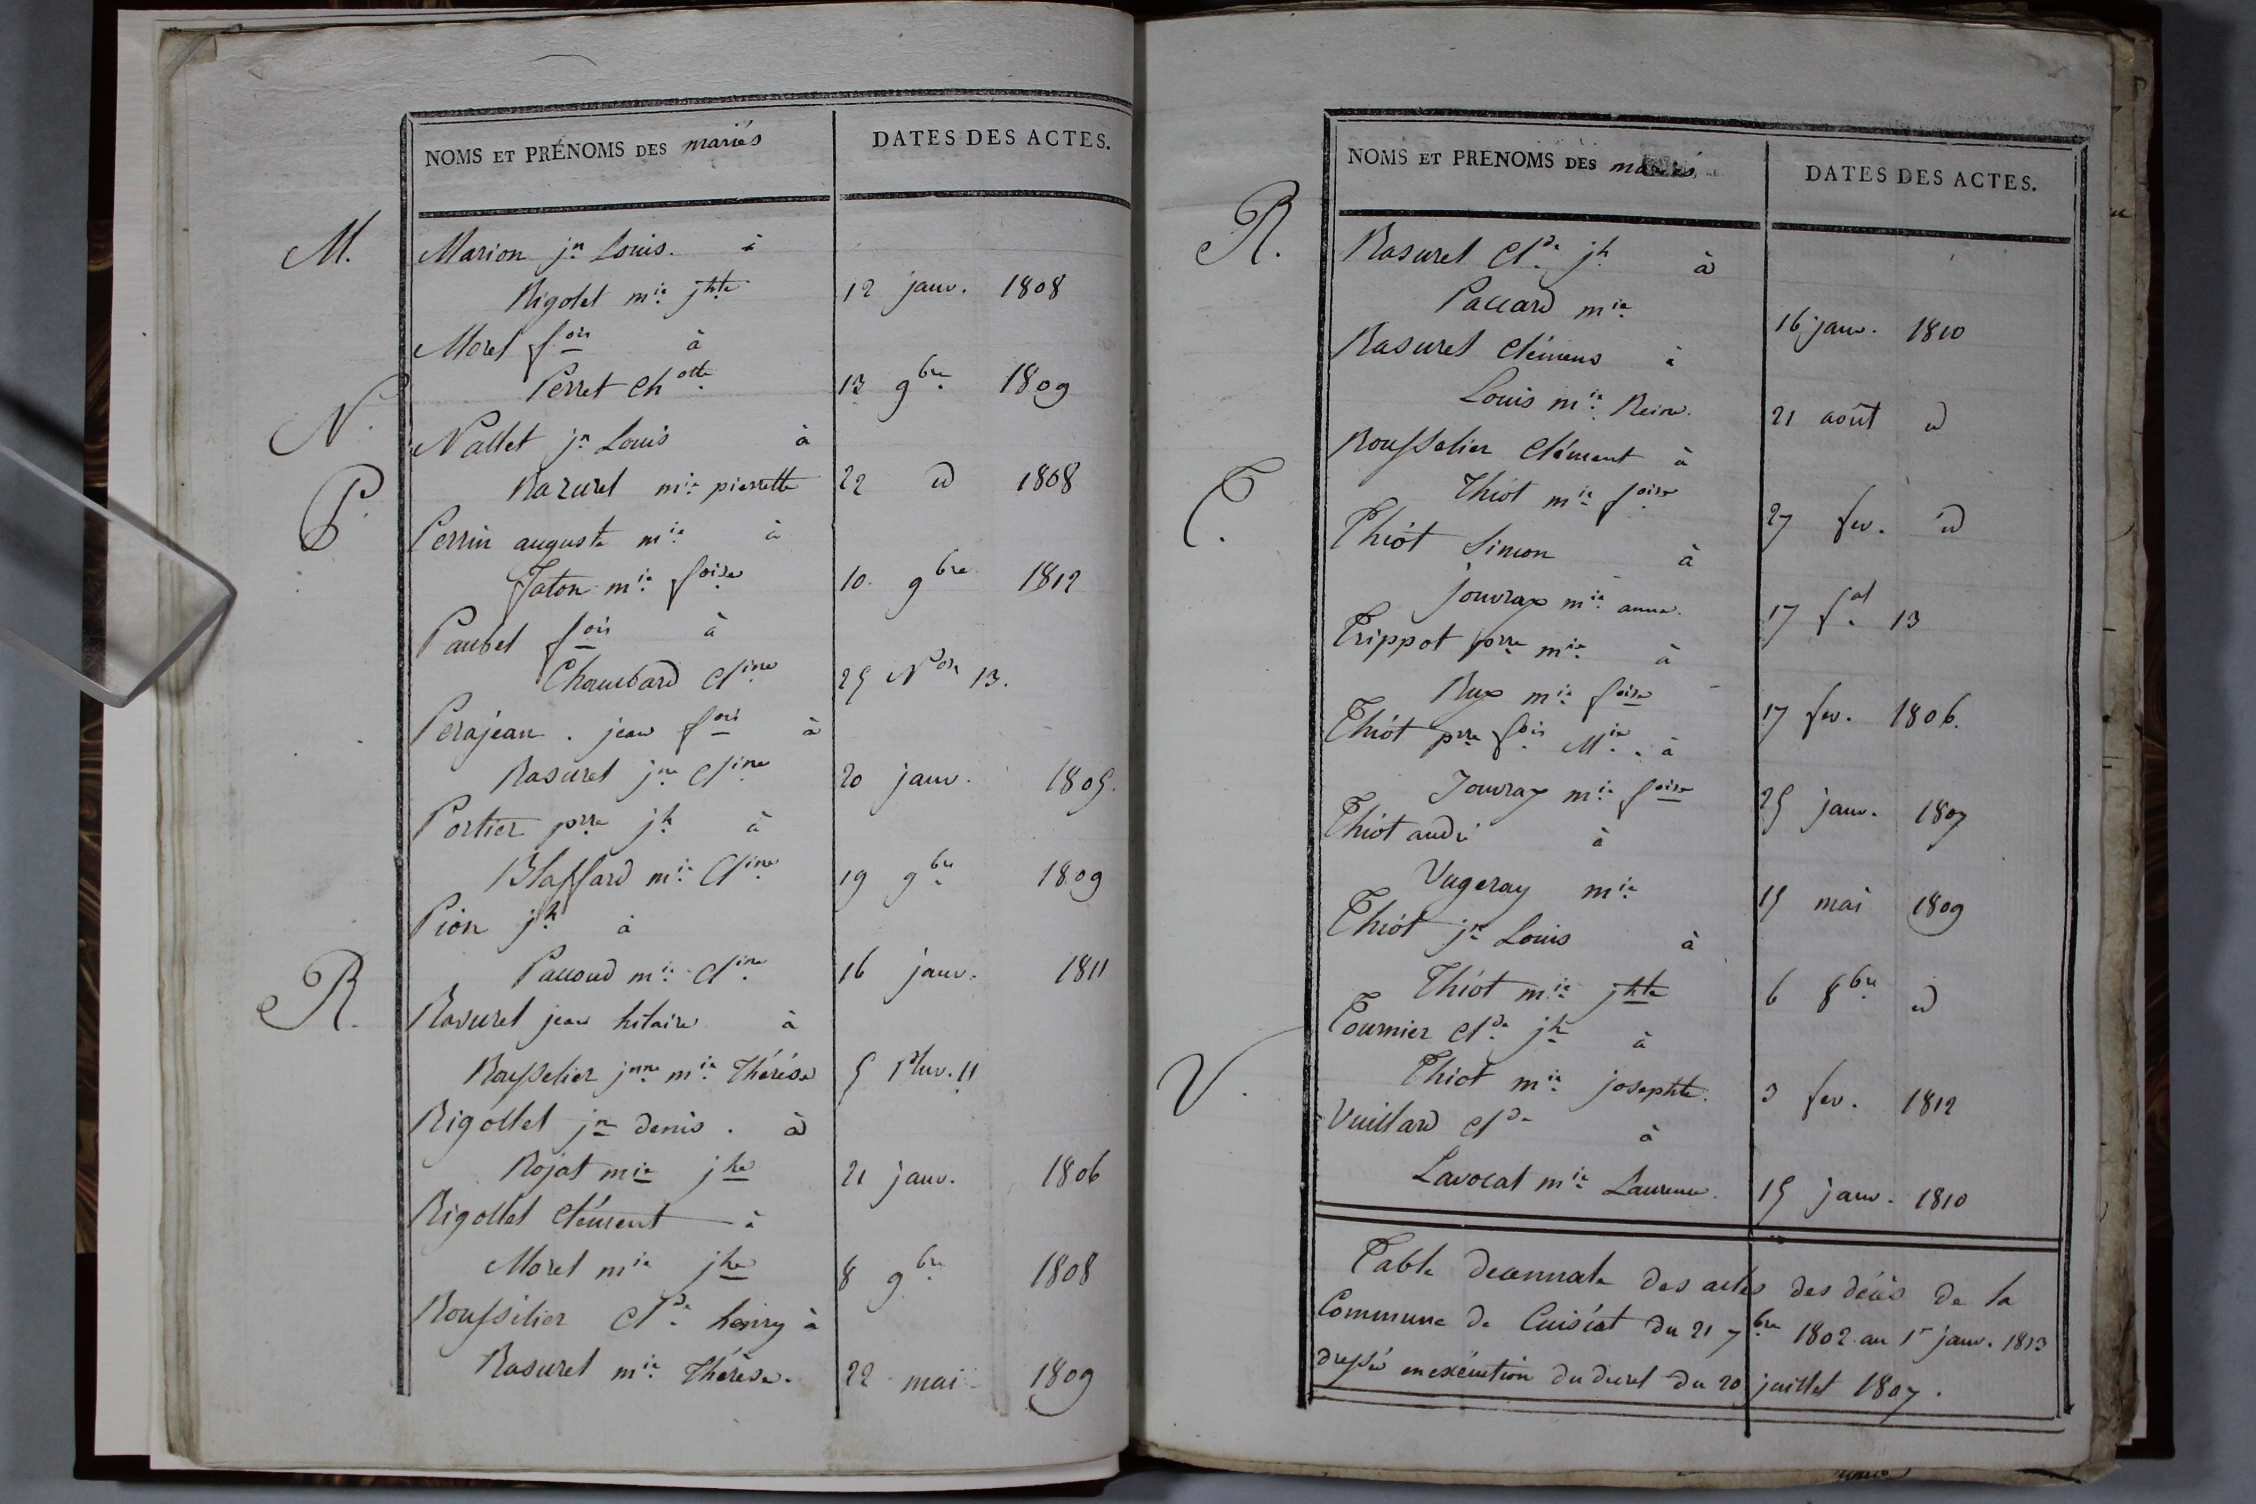 NOMS ET PRÉNOMS DES mariés DATES DES ACTES.
M. Marion jn Louis. à
Rigolet mie jhte 12 janv. 1808
Morel fois à
Perret Chotte 13 9bre 1809
N. Nallet jn Louis à
Razurel mie pierrette 22 id 1808
P. Perrin auguste mie à
Jaton mie foise 10. 9bre 1812
Paubel fois à
Chambard Cline 25 Nose 13.
Perajean. jean fois à
Rasurel jne Cline 20 janv. 1805.
Portier prre jh à
Blaffard mie Cline 19 9bre 1809
Pion jh à
Paccoud mie Cline 16 janv. 1811
R. Rasurel jean hilaire à
Rousselier jnne mie Thérèse 5 Pluv. 11
Rigollet jn denis. à
Rojat mie jhe 21 janv. 1806
Rigollet Clément à
Morel mie jhe 8 9bre 1808
Roussilier Clde henry à
Rasurel mie Thérèse. 22 mai 1809
NOMS ET PRENOMS DES mariés DATES DES ACTES.
R. Rasurel Clde jh à
Paccard mie 16 janv. 1810
Rasurel Clémens à
Louis mie Reine. 21 août id
Rousselier Clément à
Thiot mie foise 27 fev. id
T. Thiot Simon à
Jouvray mie anne. 17 fal 13
Trippot prre mie à
Rux mie foise 17 fev. 1806.
Thiot prre fois Mie. à
Jouvray mie foise 25 janv. 1807
Thiot andré à
Vugeray mie 15 mai 1809
Thiot jn Louis à
Thiot mie jhte 6 8bre id
Tournier Clde jh à
Thiot mie josephte. 3 fev. 1812
V. Vuillard Clde à
Lavocat mie Laurence. 15 janv. 1810
Table decennale des actes des décès de la
Commune de Cuisiat du 21 7bre 1802 au 1r janv. 1813
dressée en exécution du decret du 20 juillet 1807.